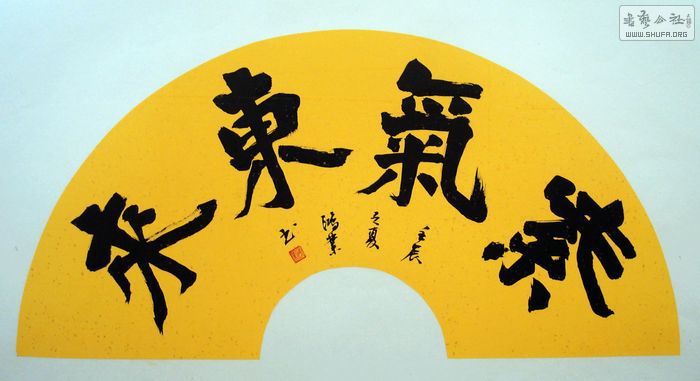 紫氣東来
壬辰
之夏
鴻業
书
書藝公社
WWW.SHUFA.ORG